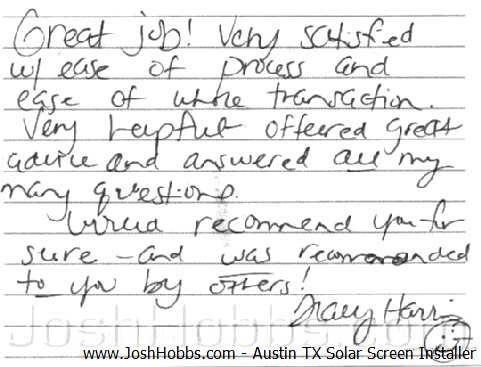 Great job! Very satisfied
w/ ease of process and
ease of whole transaction.
Very helpful offered great
advice and answered all my
many questions.
Would recommend you for
sure - and was recommended
to you by others!
Tracy Harris
JoshHobbs.com
www.JoshHobbs.com - Austin TX Solar Screen Installer